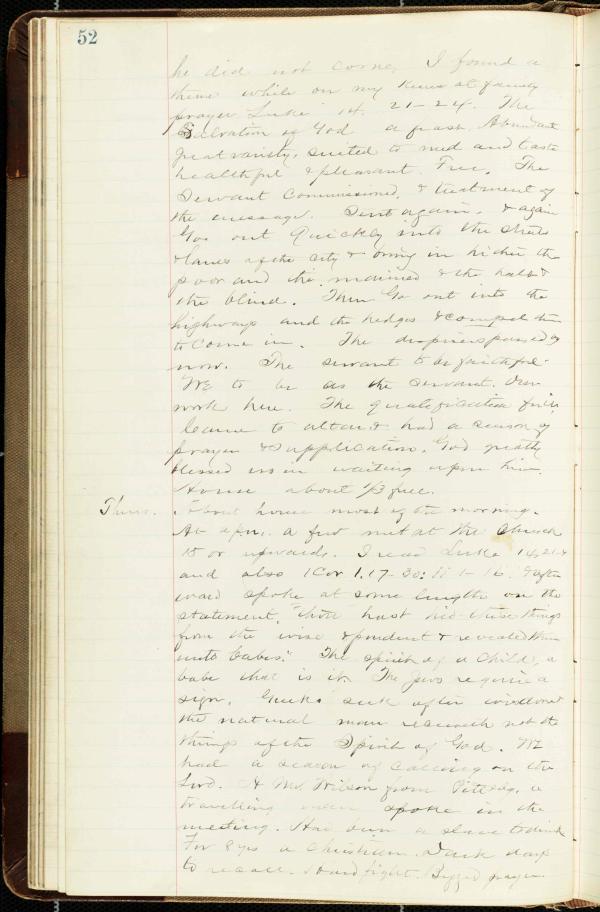 52
he did not come. I found a
theme while on my knees at family
prayer Luke 14. 21-24. The
Salvation of God a feast. Abundant
great variety, suited to need and taste
healthful & pleasant. Free. The
Servant Commissioned. & treatment of
the message. Sent again. & again
Go out Quickly into the streets
& lanes of the city & bring in hither the
poor and the maimed & the halt &
the blind. Then Go out into the
highways and the hedges & compel them
to Come in. The
now. The servant to be faithful.
We to be as the servant. Our
work here. The qualification
came to altar & had a season of
prayer & supplication. God greatly
blessed us in waiting upon him.
House about 2/3 full.
Thurs. About house most of the morning.
At a few met at the Church
15 or upwards. I read Luke 14, 21-
and also 1 Cor 1.17-30: II 1-16. & after
ward spoke at some length on the
statement, "Thou hast hid these things
from the wise & prudent & revealed them
unto babes." The spirit of a Child, a
babe that is it. The Jews require a
sign, Greeks seek after wisdom
the natural man receiveth not the
things of the Spirit of God. We
had a season of calling on the
Lord. A Mr. Wilson from Pittsbg, a
travelling man spoke in the
meeting. Had been a slave to drink
For 8 yrs a Christian. Dark days
to recall. Hard fight. Begged prayer